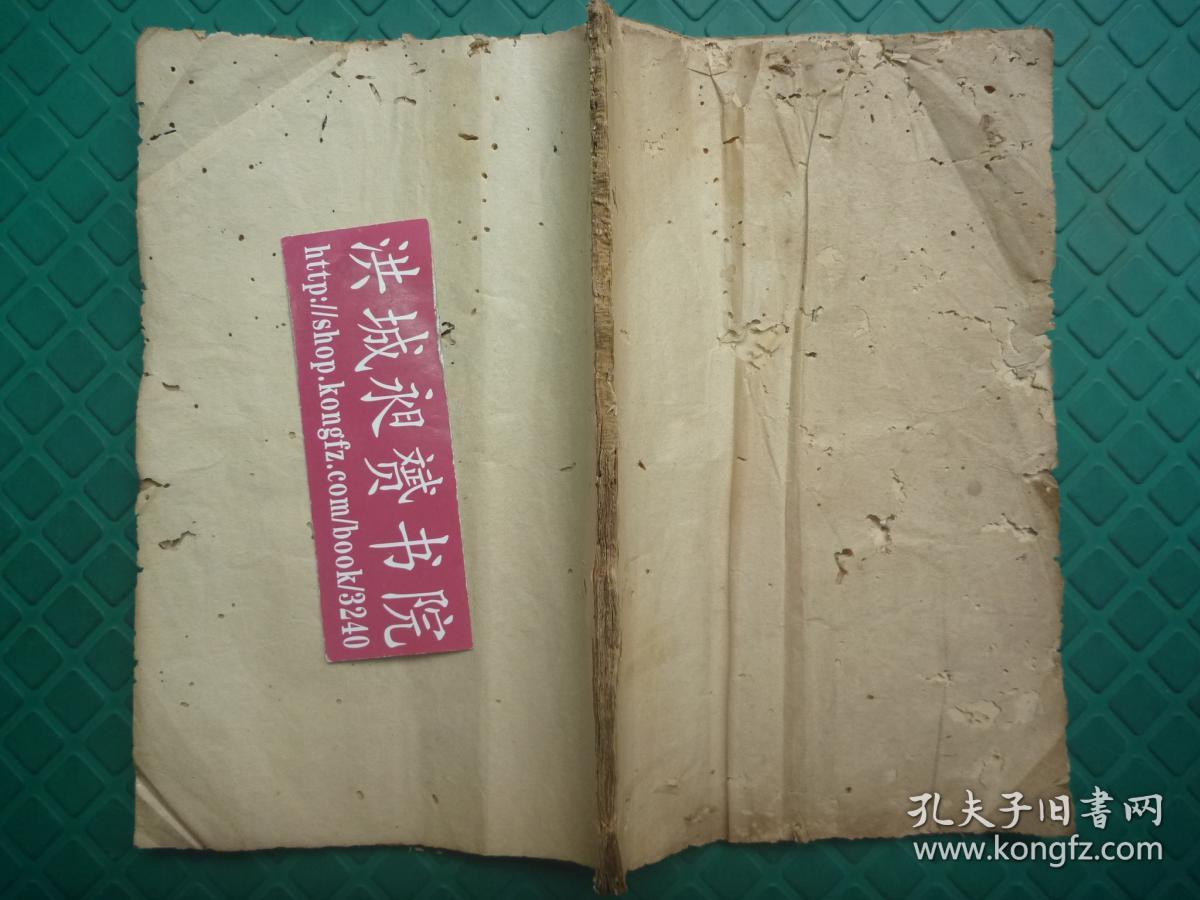 洪城昶赟书院
http://shop.kongfz.com/book/3240
孔夫子旧書网
www.kongfz.com